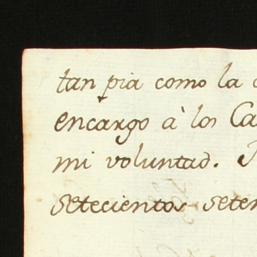 tan pia como la
encargo à los Ca
mi voluntad.
setecientos seten